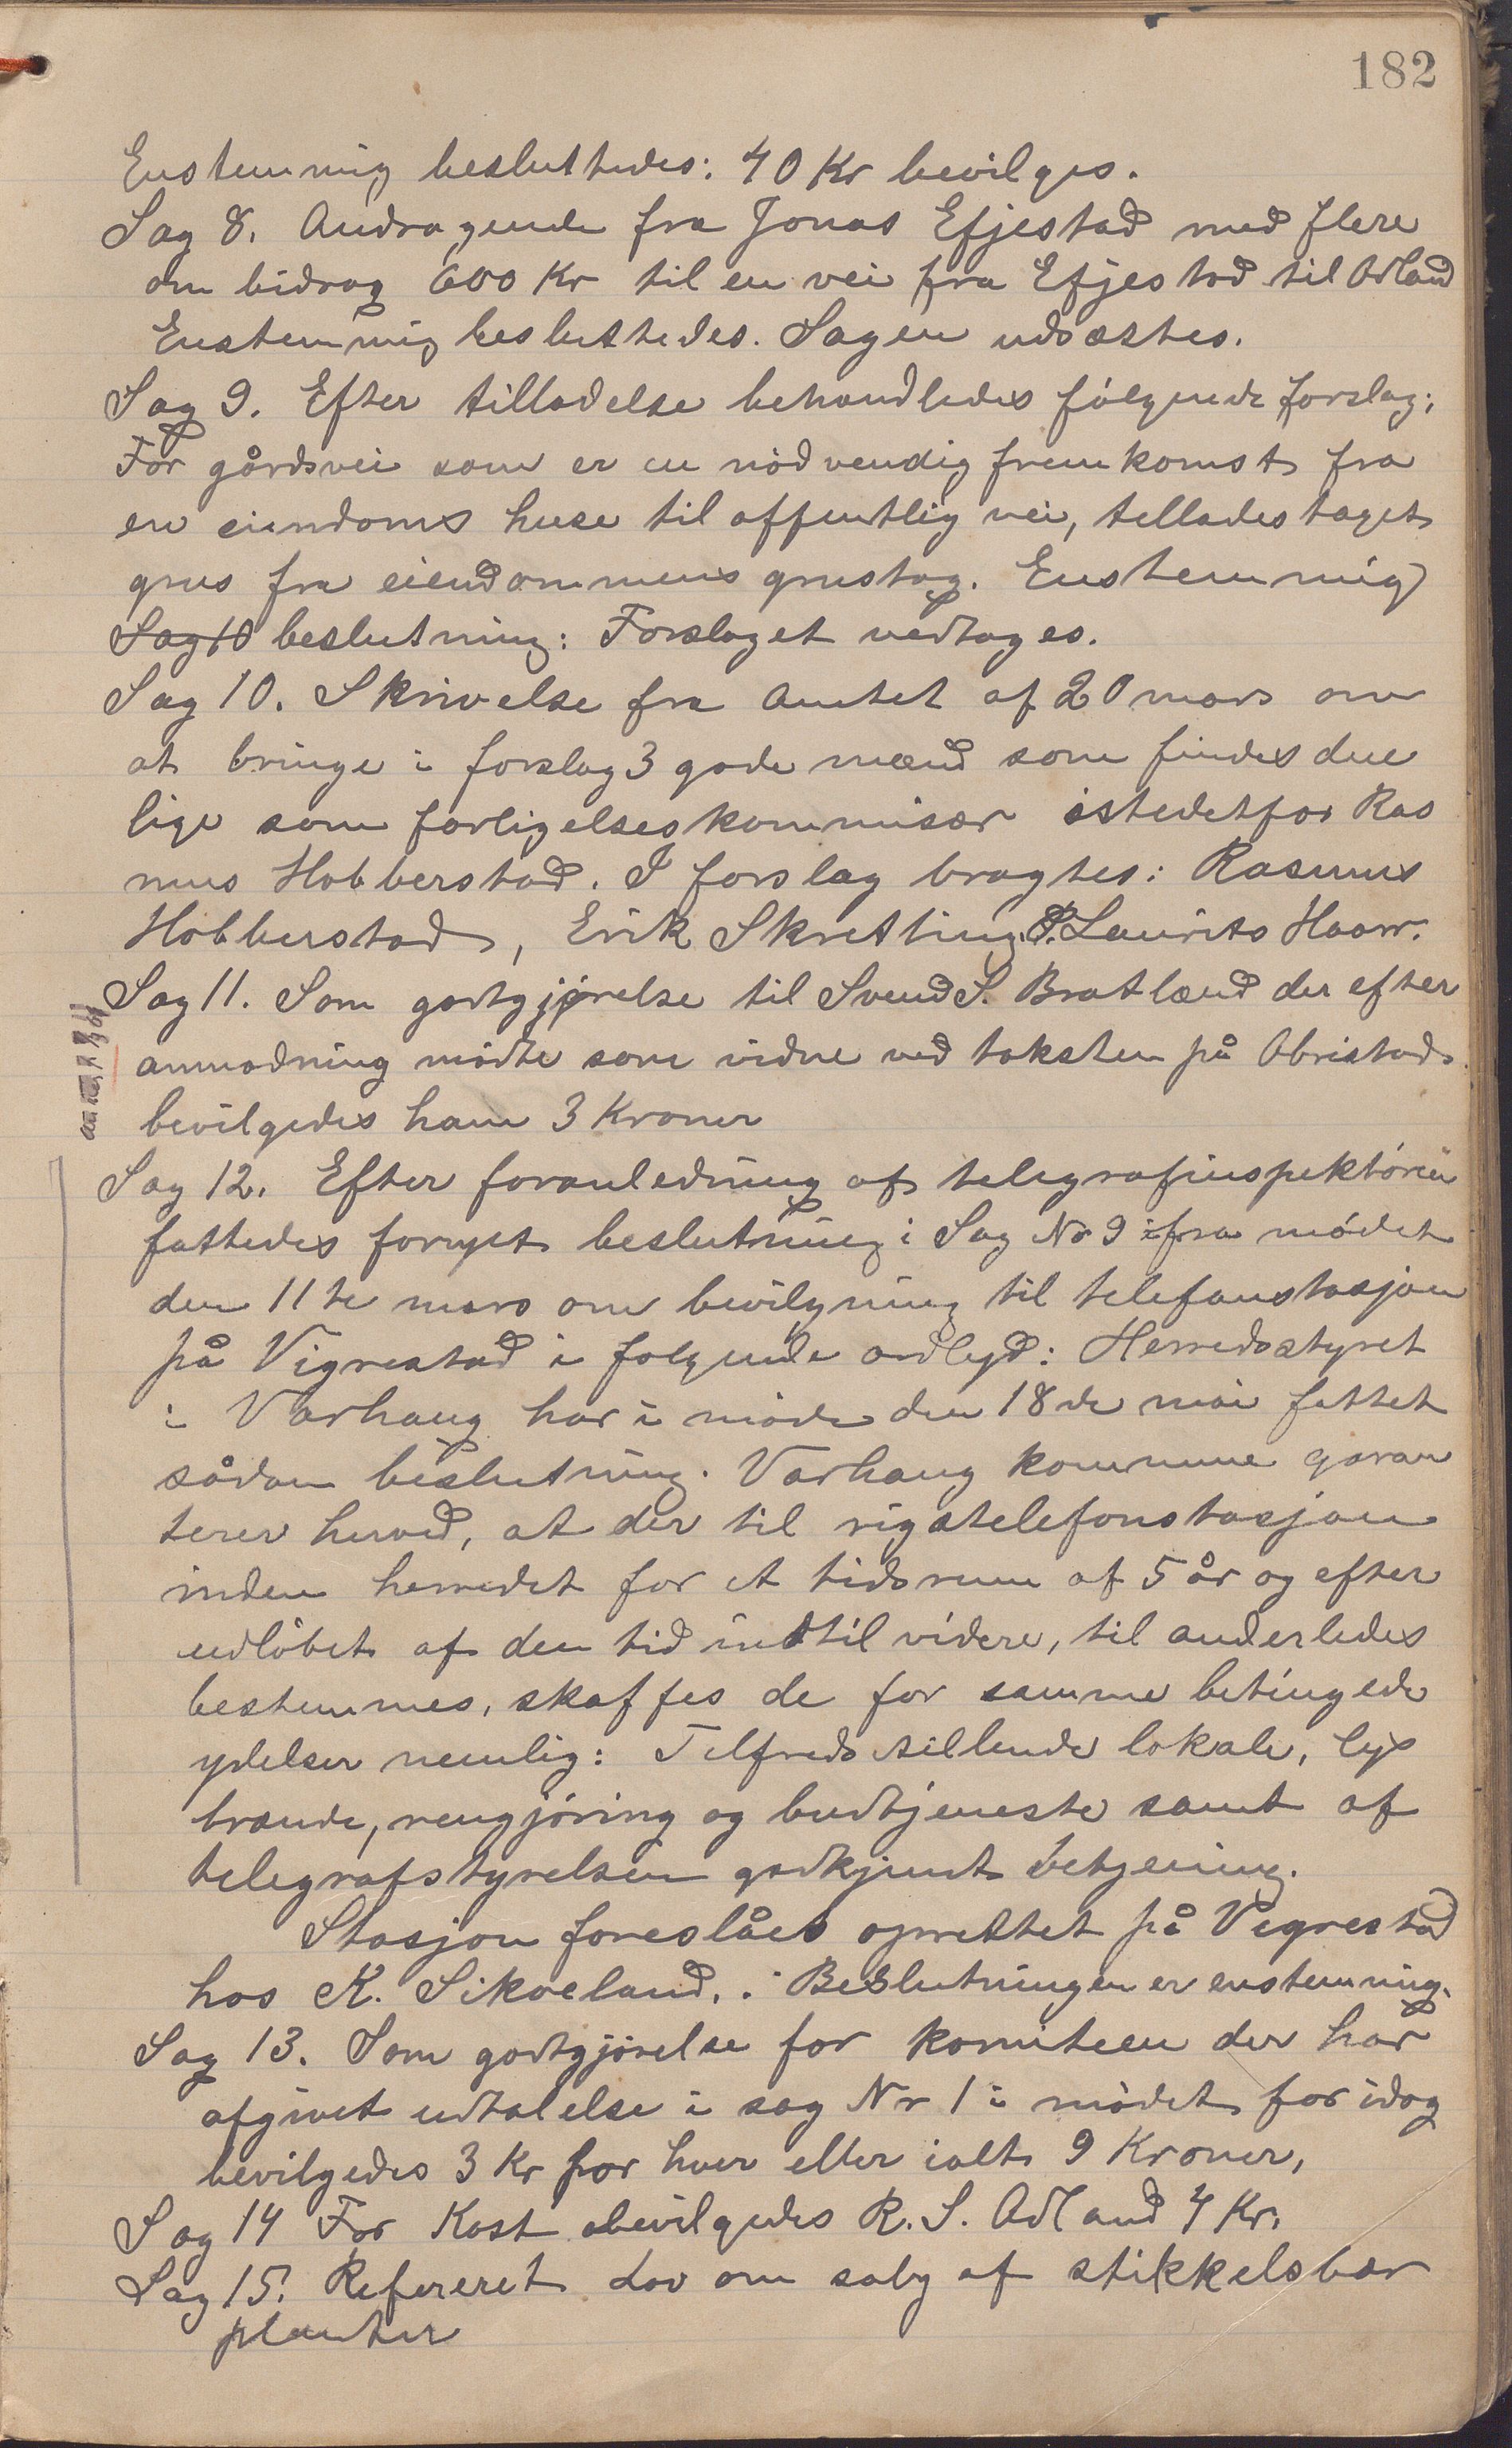 182
Enstemmig besluttedes: 40 Kr bevilges.
Sag 8. Andragende fra Jonas Efjestad med flere
om bidrag 600 Kr til en vei fra Efjestad til Adland
Enstemmig besluttedes. Sagen udsættes.
Sag 9. Efter tilladelse behandledes følgende forslag;
For gårdsvei som er en nødvendig fremkomst fra
en eiendoms huse til offentlig vei, tillades taget
grus fra eiendommens grustag. Enstemmig
Sag 10 beslutning: Forslaget vedtages.
Sag 10. Skrivelse fra Amtet af 20 mars om
at bringe i forslag 3 gode mænd som findes due
lige som forligelseskommisær istedetfor Ras
mus Hobberstad. I forslag bragtes: Rasmus
Hobberstad, Erik Skretting, Laurits Haar.
Sag 11. Som godtgjørelse til Svend S. Bratland der efter
anmodning mødte som vidne ved taksten på Obristad
bevilgedes ham 3 Kroner
Sag 12. Efter foranledning af telegrafinspektøren
fattedes fornyet beslutning i Sag No 9 ifra mødet
den 11te mars om bevilgning til telefonstasjon
på Vigrestad i følgende ordlyd: Herredsstyret
i Varhaug har i møde den 18de mai fattet
sådan beslutning. Varhaug kommune garan
terer herved, at der til rigstelefonstasjon
inden herredet for et tidsrum af 5 år og efter
udløbet af den tid indtil videre, til anderledes
bestemmes, skaffes de for samme betingede
ydelser nemlig: Tilfredstillende lokale, lys
brænde, rengjøring og budtjeneste samt af
telegrafstyrelsen godkjendt betjening.
Stasjon foreslåes oprettet på Vigrestad
hos K. Sikveland. Beslutningen er enstemmig.
Sag 13. Som godtgjørelse for komiteen der har
afgivet udtalelse i sag Nr 1 i mødet for idag
bevilgedes 3 Kr for hver eller ialt 9 Kroner,
Sag 14 For Kost bevilgedes R. S. Adland 4 Kr.
Sag 15. Refereret Lov om salg af stikkelsbær
planter